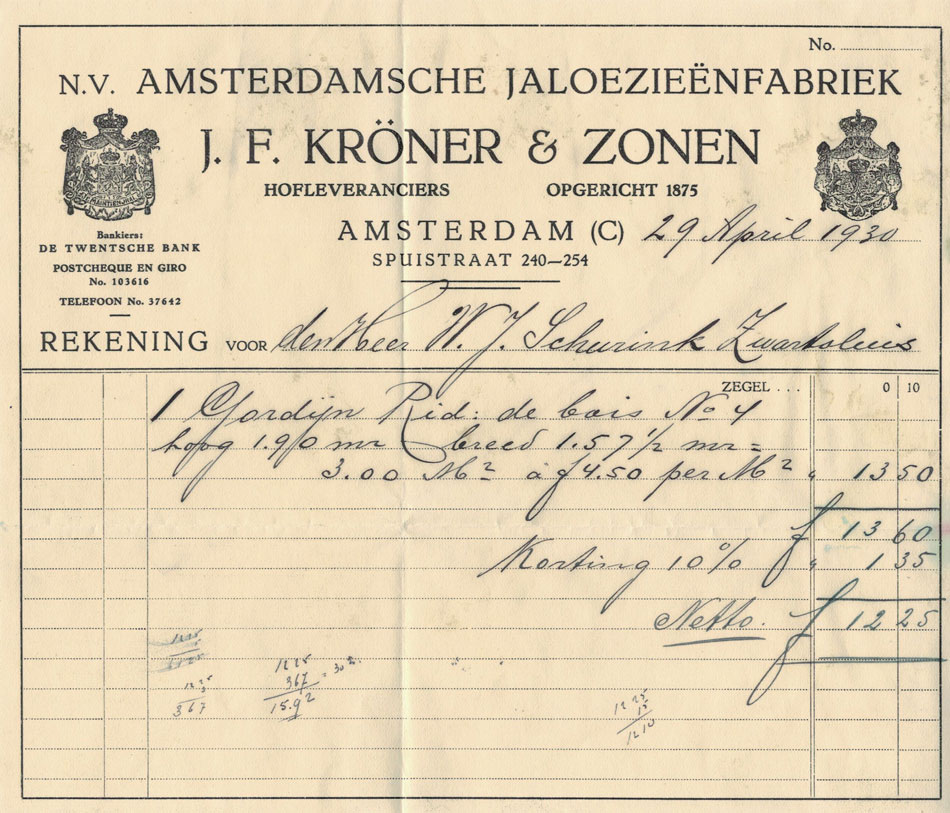 No.
N.V. AMSTERDAMSCHE JALOEZIEËNFABRIEK
J. F. KRÖNER & ZONEN
HOFLEVERANCIERS OPGERICHT 1875
AMSTERDAM (C) 29 April 1930
SPUISTRAAT 240—254
Bankiers:
DE TWENTSCHE BANK
POSTCHEQUE EN GIRO
No. 103616
TELEFOON No. 37642
REKENING VOOR den Heer W. J. Schurink Zwartsluis
ZEGEL . . . 0 10
1 Gordijn Rid: de bois No 4
hoog 1.90 mr breed 1.57 1/2 mr =
3.00 M² à f 4.50 per M² " 13 50
f 13 60
Korting 10% " 1 35
Netto. f 12 25
12 25
3
367
12 25
367 = 30%
15.92
12 25
15
12 10